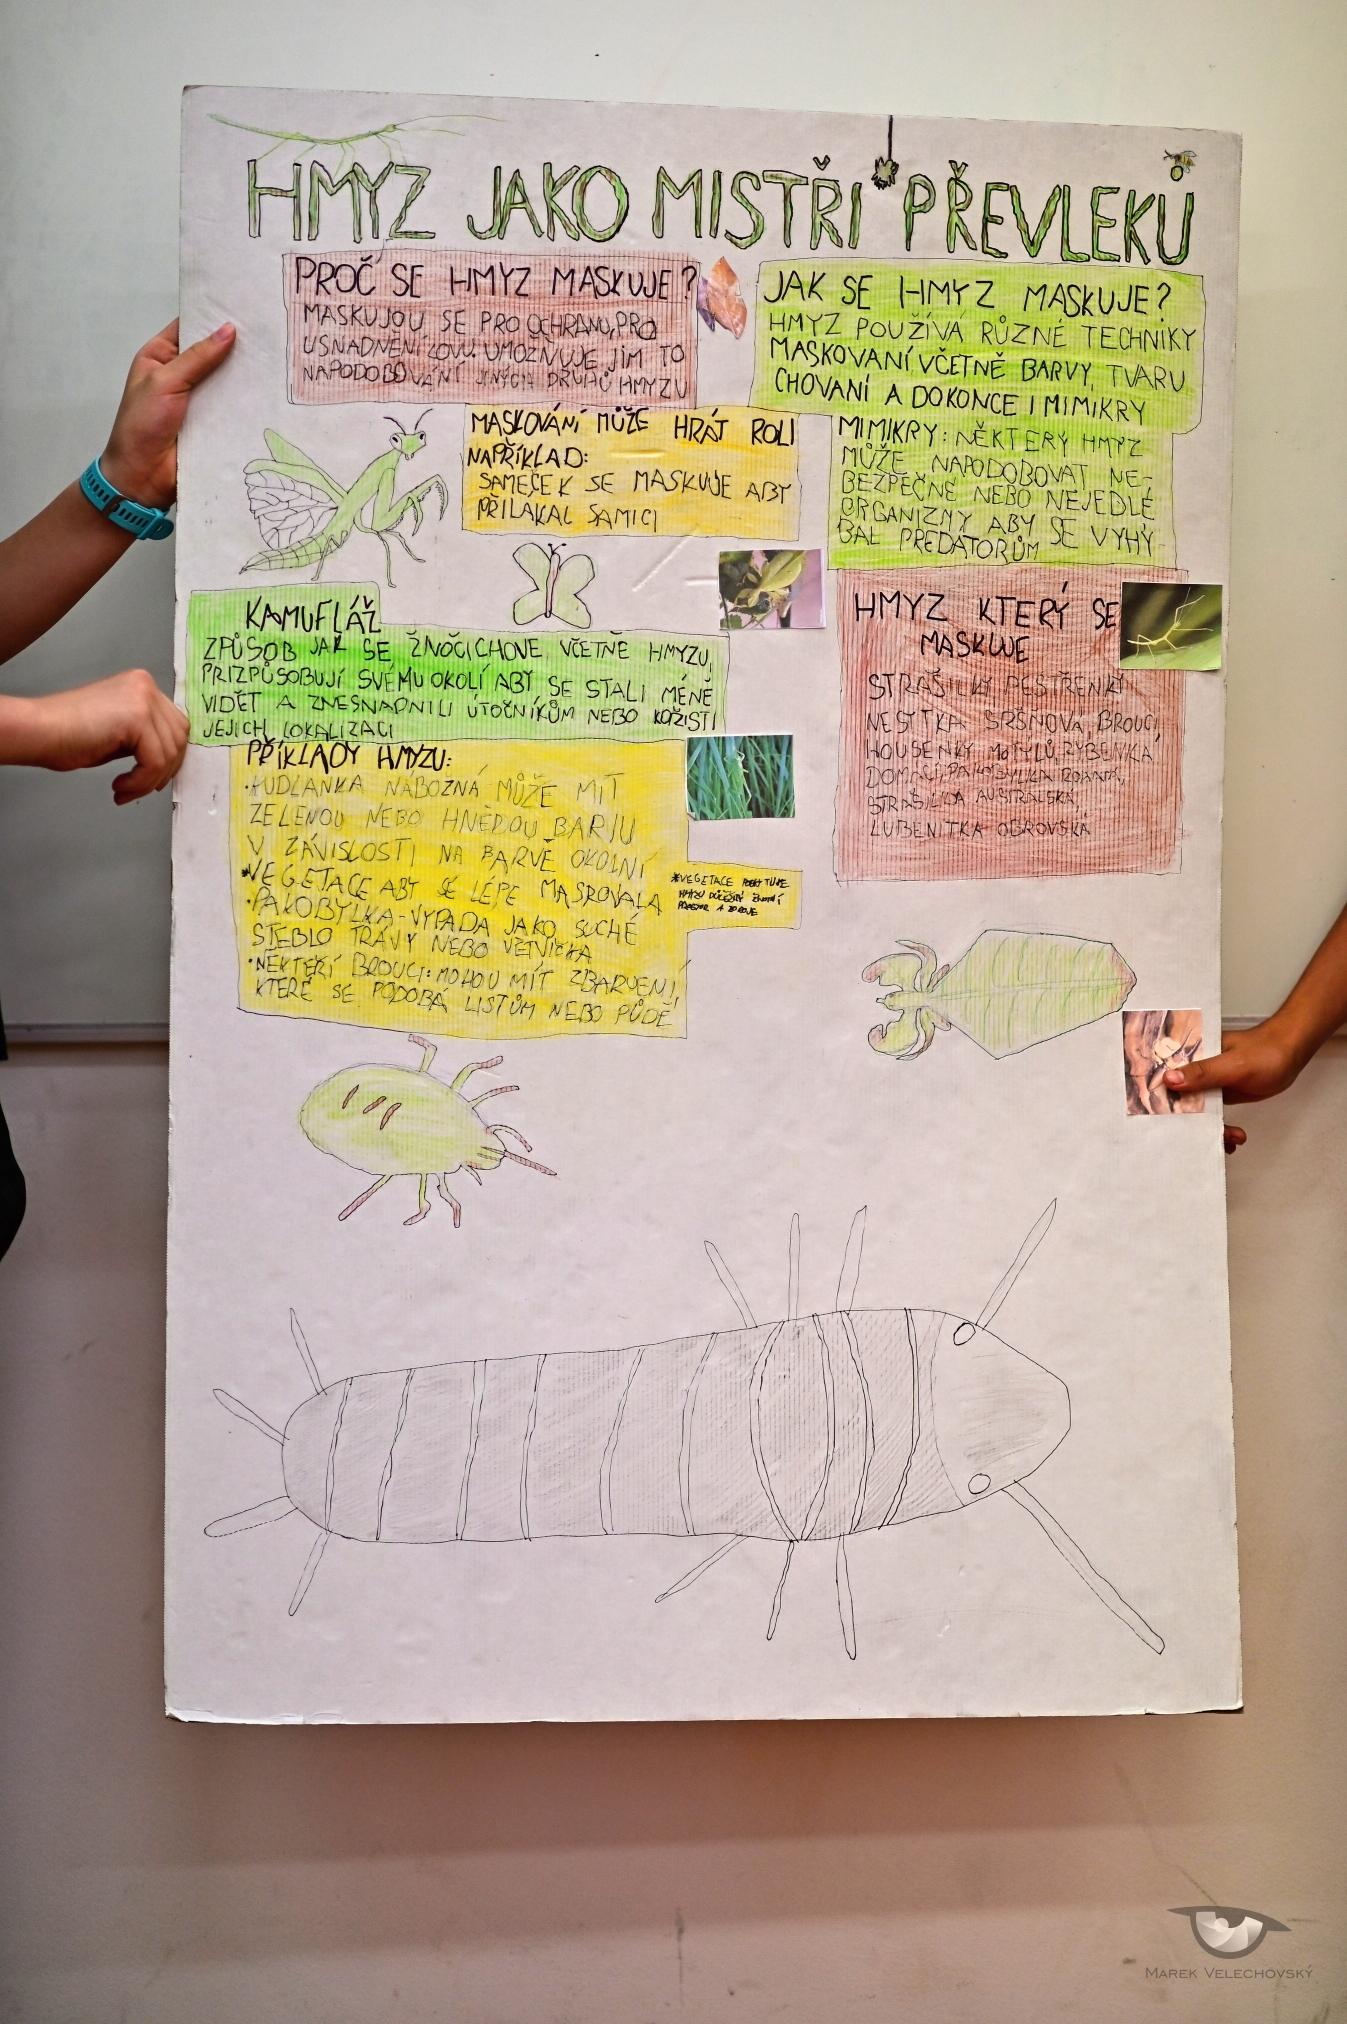 HMYZ JAKO MISTŘI PŘEVLEKŮ
PROČ SE HMYZ MASKUJE?
MASKUJOU SE PRO OCHRANU, PRO
USNADNĚNÍ LOVU. UMOŽŇUJE JIM TO
NAPODOBOVÁNÍ JINÝCH DRUHŮ HMYZU
JAK SE HMYZ MASKUJE?
HMYZ POUŽÍVÁ RŮZNÉ TECHNIKY
MASKOVANÍ VČETNĚ BARVY, TVARU
CHOVANÍ A DOKONCE I MIMIKRY
MASKOVÁNÍ MŮŽE HRÁT ROLI
NAPŘÍKLAD:
SAMEČEK SE MASKUJE ABY
PŘILAKAL SAMICI
MIMIKRY: NĚKTERÝ HMYZ
MŮŽE NAPODOBOVAT NE-
BEZPĚČNÉ NEBO NEJEDLÉ
ORGANIZMY ABY SE VYHÝ-
BAL PREDÁTORŮM
KAMUFLÁŽ
ZPŮSOB JAK SE ŽIVOČICHOVE, VČETNĚ HMYZU,
PRIZPŮSOBUJÍ SVÉMU OKOLÍ ABY SE STALI MÉNĚ
VIDĚT A ZNESNADNILI ÚTOČNÍKŮM NEBO KOŘISTI
JEJICH LOKALIZACI
HMYZ KTERÝ SE
MASKUJE
STRAŠILKY PESTŘENKY
NESYTKA SRŠŇOVÁ, BROUCI
HOUSENKY MOTÝLŮ, RYBENKA
DOMÁCÍ, PAKOBYLKA ROHATÁ,
STRAŠILKA AUSTRALSKÁ,
LUPENITKA OBROVSKÁ
PŘÍKLADY HMYZU:
·KUDLANKA NÁBOŽNÁ MŮŽE MÍT
ZELENOU NEBO HNĚDOU BARVU
V ZÁVISLOSTI NA BARVĚ OKOLNÍ
*VEGETACE ABY SE LÉPE MASKOVALA
·PAKOBYLKA-VYPADÁ JAKO SUCHÉ
STÉBLO TRÁVY NEBO VĚTVIČKA
·NĚKTEŘÍ BROUCI: MOHOU MÍT ZBARVENÍ
KTERÉ SE PODOBÁ LISTŮM NEBO PŮDĚ
*VEGETACE POSKYTUJE
HMYZU DŮLEŽITÝ ŽIVOTNÍ
PROSTOR A ZDROJE
MAREK VELECHOVSKÝ